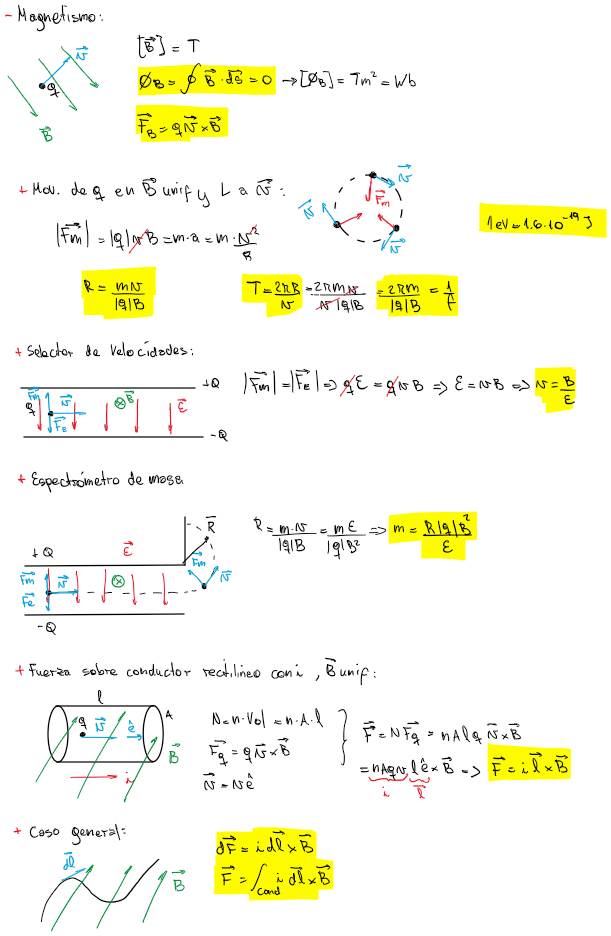 - Magnetismo:
[B⃗] = T
v⃗
q
B⃗
Ø_B = ∮ B⃗ · dS⃗ = 0 → [Ø_B] = Tm² = Wb
F⃗_B = q v⃗ × B⃗
+ Mov. de q en B⃗ unif y ⊥ a v⃗:
v⃗
F⃗m
v⃗
v⃗
1eV = 1.6·10⁻¹⁹ J
|F⃗m| = |q|vB = m·a = m·v²/R
R = mv/|q|B
T = 2πR/v = 2πmv/v|q|B = 2πm/|q|B = 1/f
+ Selector de velocidades:
+Q
F⃗m
q
v⃗
⊗B⃗
ε⃗
F⃗_E
-Q
|F⃗m| = |F⃗_E| => qε = qvB => ε = vB => v = B/ε
+ Espectrómetro de masa
R̅
+Q
ε⃗
F⃗m
v⃗
F⃗m
v⃗
⊗
F⃗e
-Q
R = m·v/|q|B = mε/|q|B² => m = R|q|B²/ε
+ Fuerza sobre conductor rectilíneo con i, B⃗ unif:
l
A
q
v⃗
ê
B⃗
i
N = n·Vol = n·A·l
F⃗q = q v⃗ × B⃗
v⃗ = v ê
F⃗ = N F⃗q = nAlq v⃗ × B⃗
= nAqv l ê × B⃗ => F⃗ = i l⃗ × B⃗
i
l⃗
+ Caso general:
dl⃗
B⃗
dF⃗ = i dl⃗ × B⃗
F⃗ = ∫cond i dl⃗ × B⃗